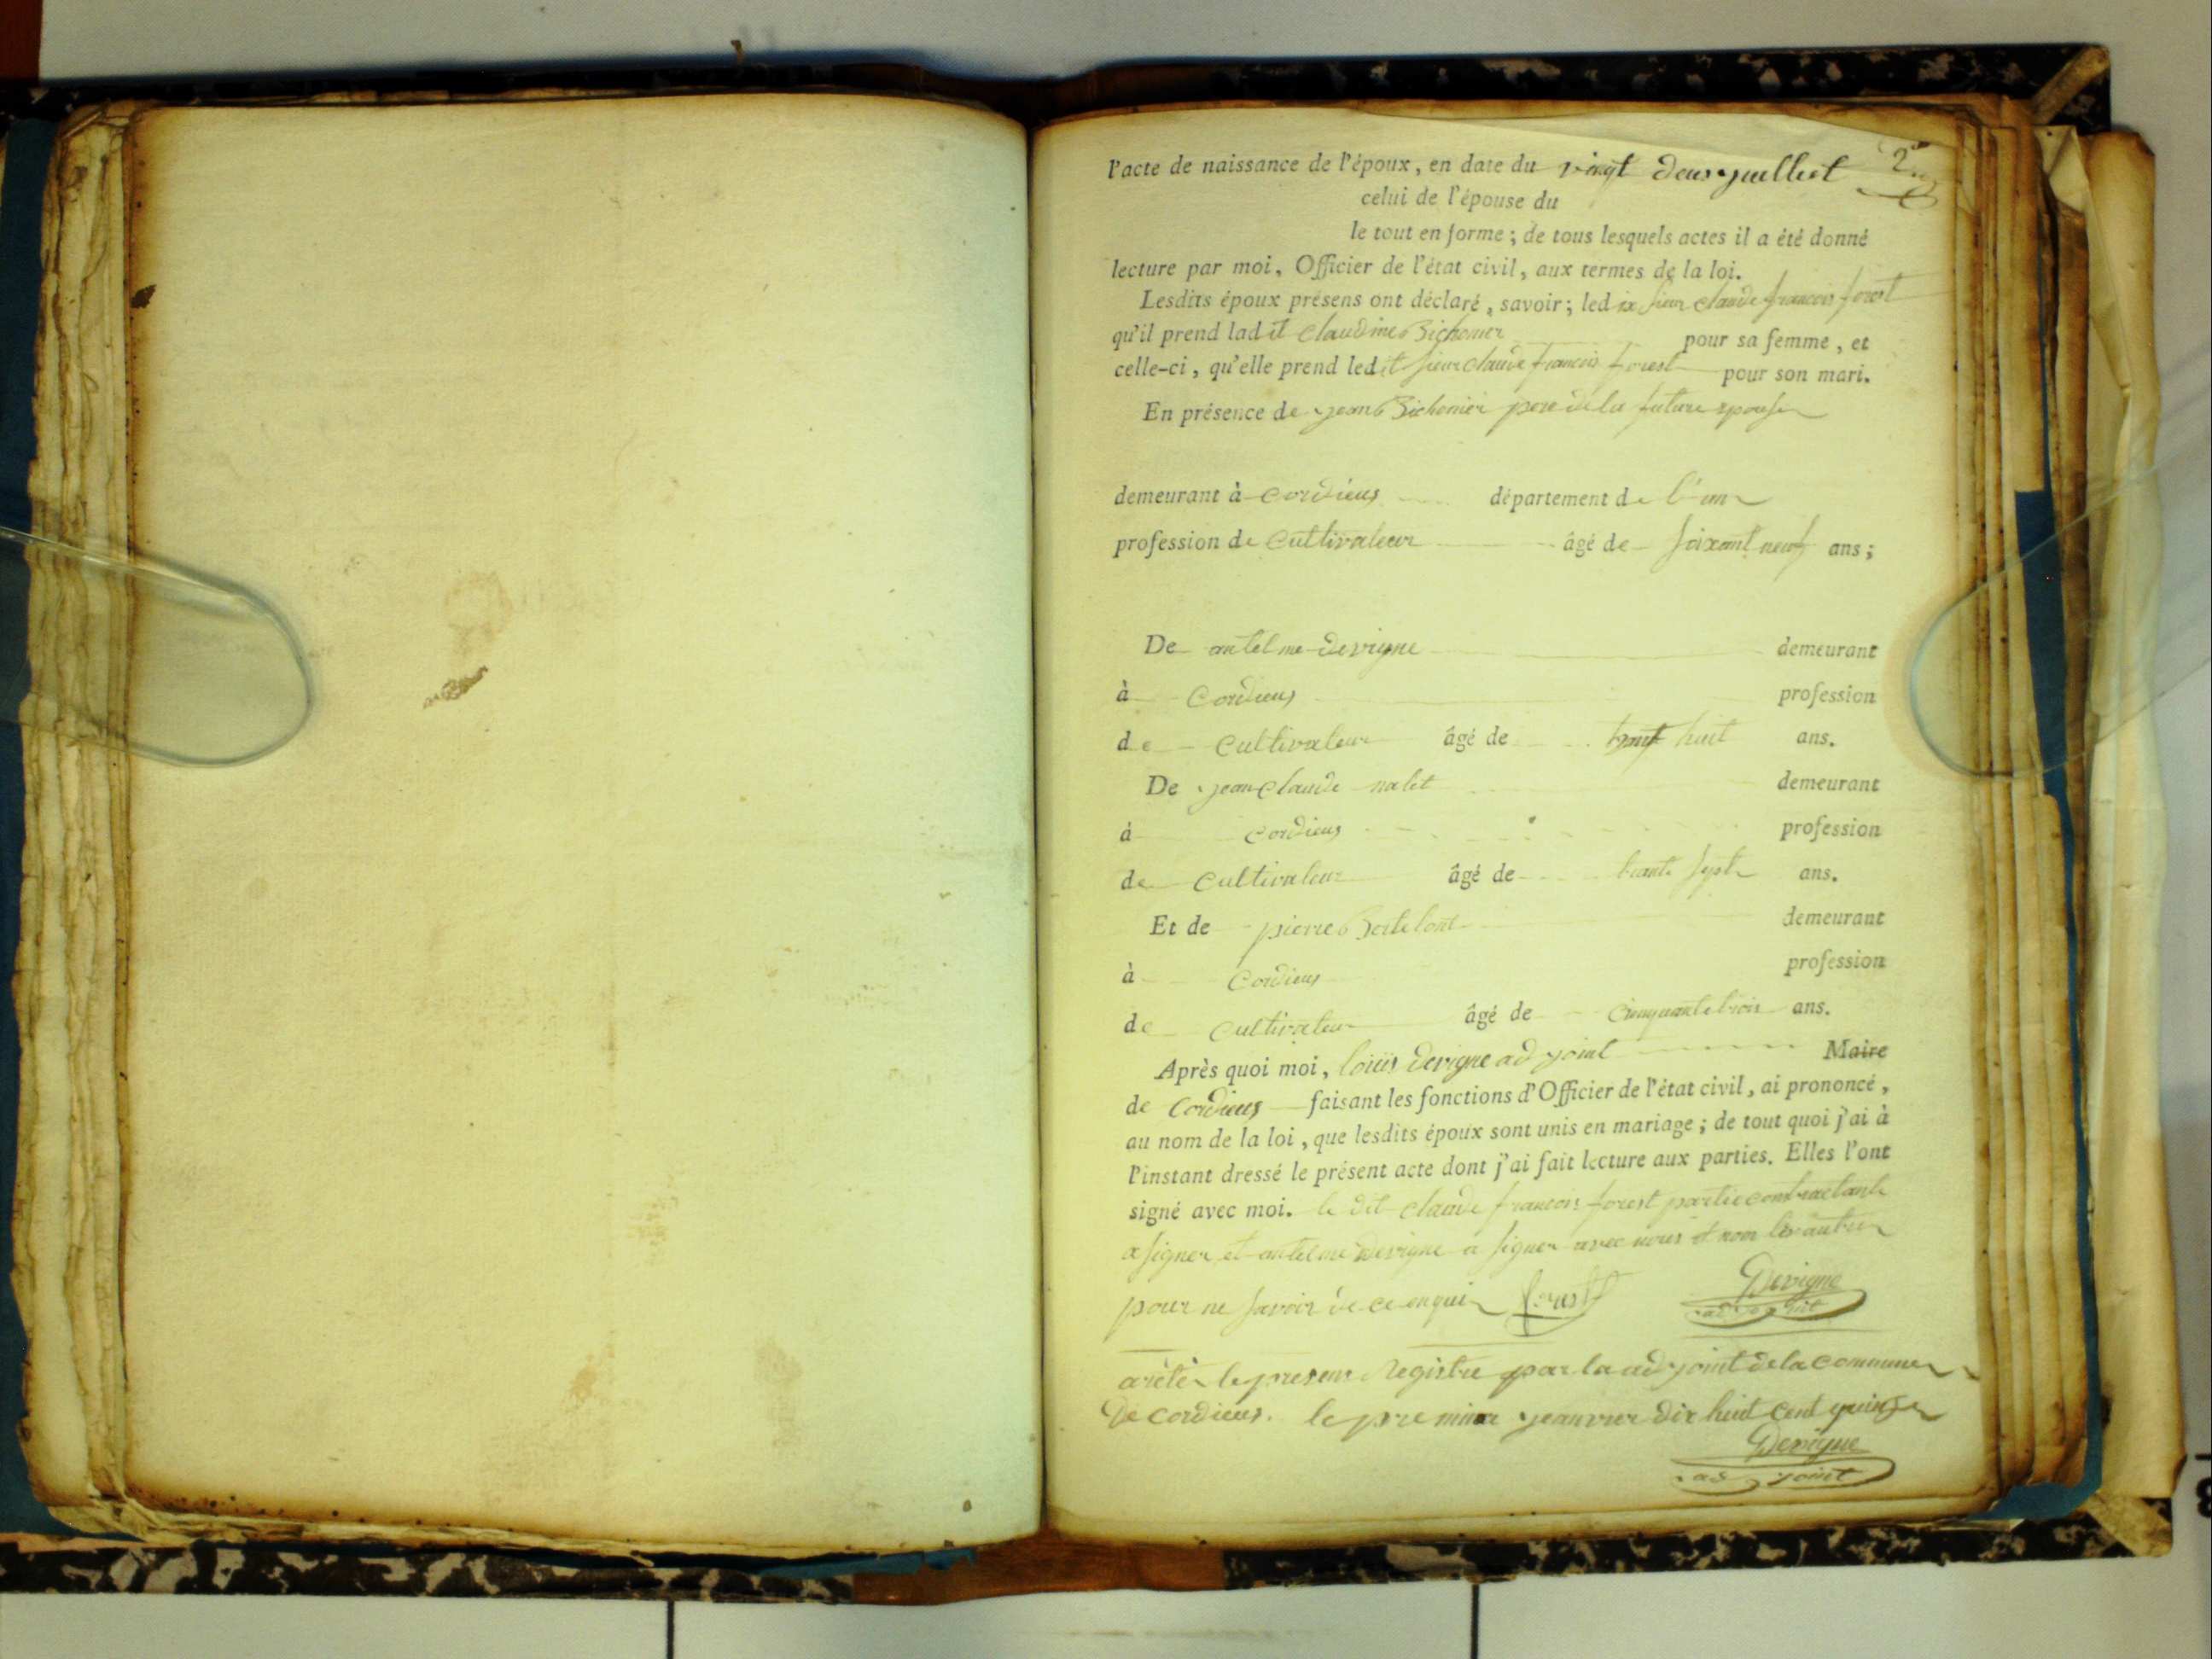 l'acte de naissance de l'époux, en date du vingt deus juilliet
celui de l'épouse du
le tout en forme ; de tous lesquels actes il a été donné
lecture par moi, Officier de l'état civil, aux termes de la loi.
Lesdits époux présens ont déclaré, savoir ; led it sieur claude francois forest
qu'il prend lad it claudine Bichonier pour sa femme, et
celle-ci, qu'elle prend led it sieur claude francois forest pour son mari.
En présence de jean Bichonier pere de la future epouse
demeurant à cordieus département de l'ain
profession de cultivateur âgé de soixant neuf ans ;
De antelme devigne demeurant
à cordieus profession
de cultivateur âgé de huit ans.
De jean claude nalet demeurant
à cordieus profession
de cultivateur âgé de trante sept ans.
Et de pierre Bertelont demeurant
à Cordieus profession
de cultivateur âgé de cinquante trois ans.
Après quoi moi, loüis devigne ad joint Maire
de Cordieus faisant les fonctions d'Officier de l'état civil, ai prononcé,
au nom de la loi, que lesdits époux sont unis en mariage ; de tout quoi j'ai à
l'instant dressé le présent acte dont j'ai fait lecture aux parties. Elles l'ont
signé avec moi. le dit claude francois forest partie contractante
a signer et antelme devigne a signer avec nous et non les autres
pour ne savoir de ce enqui forest Devigne
ad joint
arètér le presens Registre par la ad joint de la commune
De cordieus. le premier jeanvier dix huit cent quinze
Devigne
ad joint